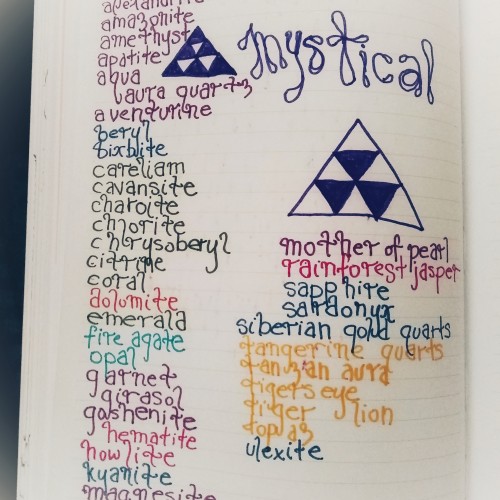 alexandrite
amazonite
amethyst
apatite
aqua
laura quartz
aventurine
beryl
bixbite
careliam
cavansite
charoite
chlorite
chrysoberyl
citrine
coral
dolomite
emerald
fire agate
opal
garnet
girasol
goshenite
hematite
howlite
kyanite
magnesite
mystical
mother of pearl
rainforest jasper
sapphire
sardonyx
siberian gold quarts
tangerine quarts
tanuzan aura
tigers eye
tiger lion
toplaz
ulexite